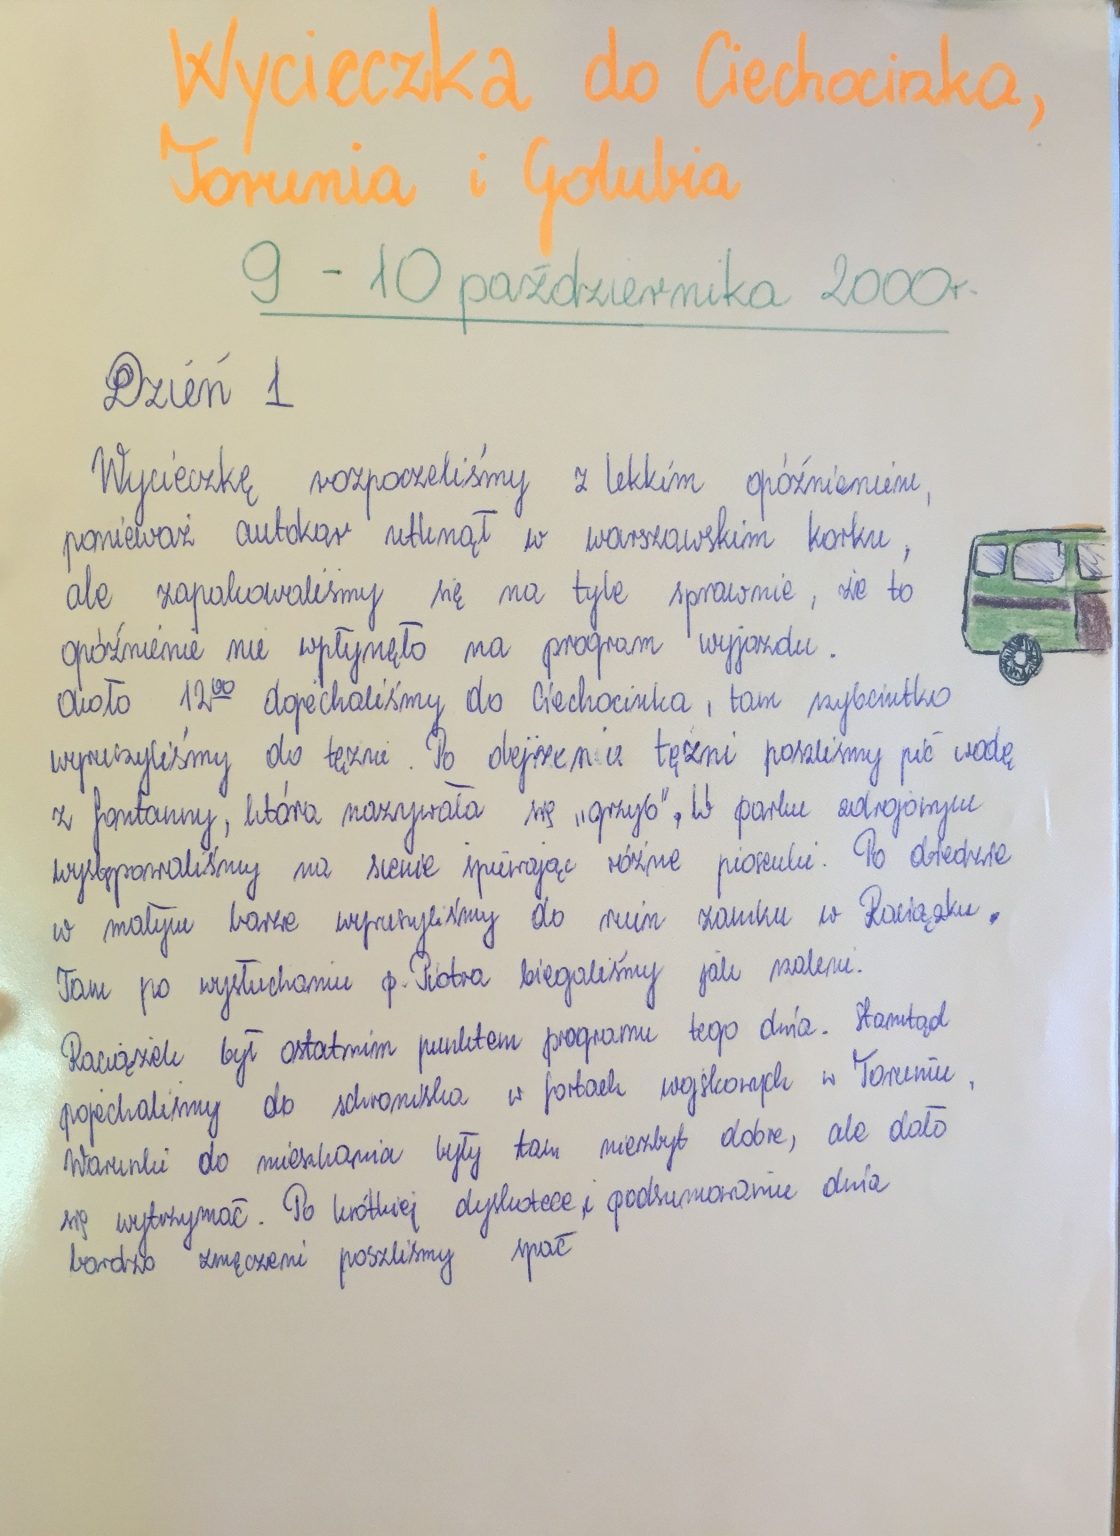 Wycieczka do Ciechocinka,
Torunia i Golubia
9 - 10 października 2000r.
Dzień 1
Wycieczkę rozpoczeliśmy z lekkim opóźnieniem,
ponieważ autokar utknął w warszawskim korku,
ale zapakowaliśmy się na tyle sprawnie, że to
opóźnienie nie wpłynęło na program wyjazdu.
około 12⁰⁰ dojechaliśmy do Ciechocinka, tam szybciutko
wyruszyliśmy do tężni. Po obejrzeniu tężni poszliśmy pić wodę
z fontanny, która nazywała się „grzyb”. W parku zdrojowym
występowaliśmy na scenie śpiewając różne piosenki. Po obiedzie
w małym barze wyruszyliśmy do ruin zamku w Raciążku.
Tam po wysłuchaniu p. Piotra biegaliśmy jak szaleni.
Raciążek był ostatnim punktem programu tego dnia. Stamtąd
pojechaliśmy do schroniska w fortach wojskowych w Toruniu.
Warunki do mieszkania były tam niezbyt dobre, ale dało
się wytrzymać. Po krótkiej dyskotece i podsumowaniu dnia
bardzo zmęczeni poszliśmy spać